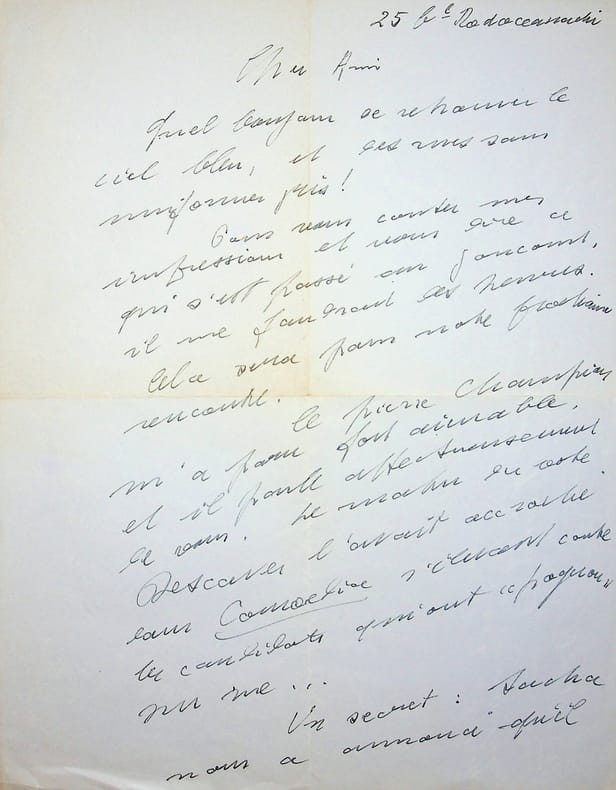 25 Bd Rodocanachi
Cher Ami
Quel bonheur de retrouver le
ciel bleu, et des rues sans
uniformes gris!
Pour vous conter mes
impressions et vous dire ce
qui s'est passé au Goncourt,
il me faudrait des heures.
Cela sera pour notre prochaine
rencontre.
Le pierre Champion
m'a paru fort aimable,
et il parle affectueusement
de vous. Le matin du vote
Descaves l'avait accroché
dans Comoedia s'élevant contre
les candidats qui ont "pognon
sur rue...
Un secret: Sacha
nous a annoncé qu'il